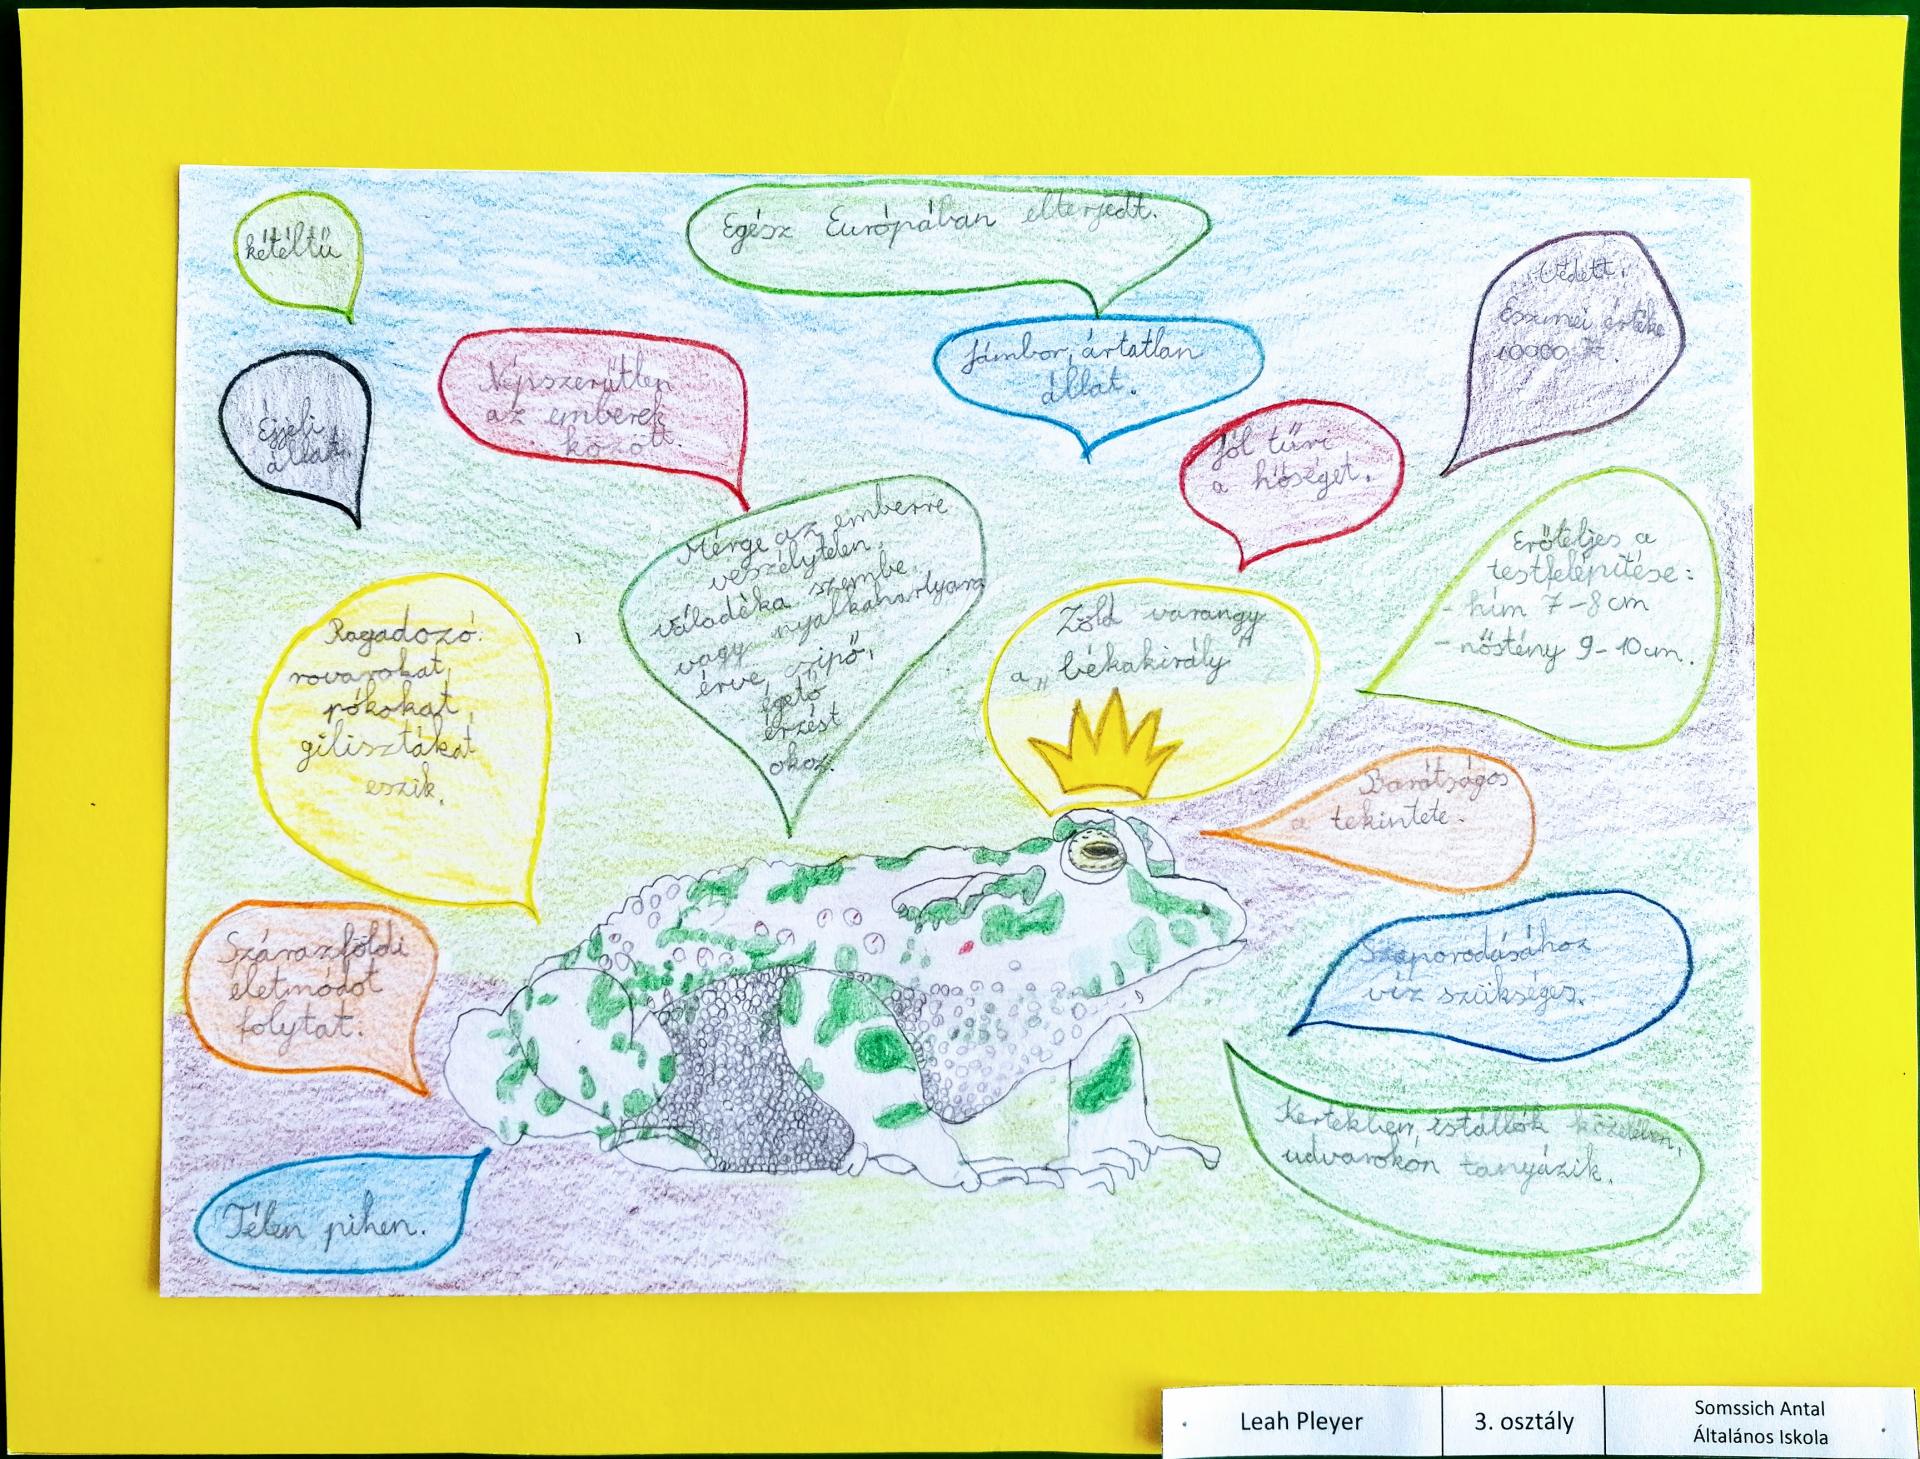 kétéltű
Egész Európában elterjedt.
Védett.
Eszmei értéke
10000 Ft.
Éjjeli
állat.
Népszerűtlen
az emberek
között.
Jámbor, ártatlan
állat.
Jól tűri
a hőséget.
Mérge az emberre
veszélytelen,
váladéka szembe
vagy nyálkahártyára
érve, csípő,
égető
érzést
okoz.
Erőteljes a
testfelépítése:
- hím 7-8cm
- nőstény 9-10cm.
Ragadozó:
rovarokat,
pókokat,
gilisztákat
eszik.
Zöld varangy
a „békakirály"
Barátságos
a tekintete.
Szárazföldi
életmódot
folytat.
Szaporodásához
víz szükséges.
Kertekben, istállók közelében,
udvarokon tanyázik.
Télen pihen.
Leah Pleyer
3. osztály
Somssich Antal
Általános Iskola